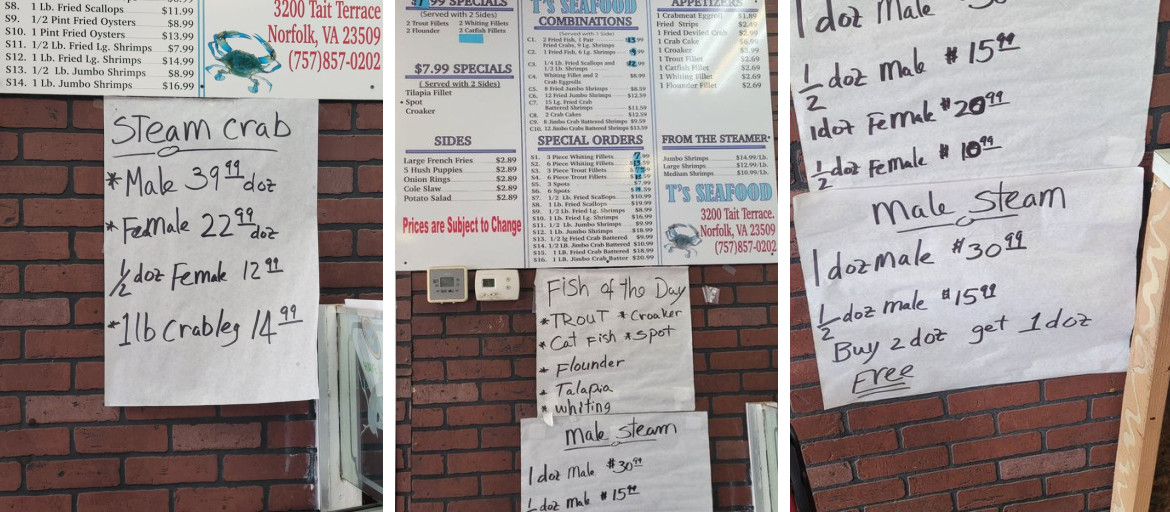 S8. 1 Lb. Fried Scallops $11.99
S9. 1/2 Pint Fried Oysters $8.99
S10. 1 Pint Fried Oysters $13.99
S11. 1/2 Lb. Fried Lg. Shrimps $7.99
S12. 1 Lb. Fried Lg. Shrimps $14.99
S13. 1/2 Lb. Jumbo Shrimps $8.99
S14. 1 Lb. Jumbo Shrimps $16.99
3200 Tait Terrace
Norfolk, VA 23509
(757)857-0202
Steam Crab
*Male 39 99 doz
*Female 22 99 doz
1/2 doz Female 12 99
*1lb Crableg 14 99
$7.99 SPECIALS
(Served with 2 Sides)
2 Trout Fillets 2 Whiting Fillets
2 Flounder 2 Catfish Fillets
$7.99 SPECIALS
(Served with 2 Sides)
Tilapia Fillet
• Spot
Croaker
SIDES
Large French Fries $2.89
5 Hush Puppies $2.89
Onion Rings $2.89
Cole Slaw $2.89
Potato Salad $2.89
Prices are Subject to Change
T'S SEAFOOD
COMBINATIONS
(Served with 1 Side)
C1. 2 Fried Fish, 1 Pair
Fried Crabs, 9 Lg. Shrimps
C2. 1 Fried Fish, 6 Lg. Shrimps
C3. 1/4 Lb. Fried Scallops and
1/2 Lb. Shrimps
C4. Whiting Fillet and 2 $8.99
Crab Eggrolls
C5. 8 Fried Jumbo Shrimps $8.59
C6. 12 Fried Jumbo Shrimps $12.59
C7. 15 Lg. Fried Crab
Battered Shrimps $11.59
C8. 2 Crab Cakes $12.59
C9. 8 Jimbo Crab Battered Shrimps $9.59
C10. 12 Jimbo Crabs Battered Shrimps $13.59
SPECIAL ORDERS
S1. 3 Piece Whiting Fillets
S2. 6 Piece Whiting Fillets
S3. 3 Piece Trout Fillets
S4. 6 Piece Trout Fillets
S5. 3 Spots $7.99
S6. 6 Spots
S7. 1/2 Lb. Fried Scallops $10.99
S8. 1 Lb. Fried Scallops $19.99
S9. 1/2 Lb. Fried Lg. Shrimps $8.99
S10. 1 Lb. Fried Lg. Shrimps $16.99
S11. 1/2 Lb. Jumbo Shrimps $9.99
S12. 1 Lb. Jumbo Shrimps $18.99
S13. 1/2 lg Fried Crab Battered $9.99
S14. 1/2 LB. Jimbo Crab Battered $10.99
S15. 1 LB. Fried Crab Battered $18.99
S16. 1 LB. Jimbo Crab Batter $20.99
APPETIZERS
1 Crabmeat Eggroll $1.89
Fried Strips $2.49
1 Fried Deviled Crab $2.99
1 Crab Cake
1 Croaker
1 Trout Fillet $2.69
1 Catfish Fillet $2.69
1 Whiting Fillet $2.69
1 Flounder Fillet $2.69
FROM THE STEAMER
Jumbo Shrimps $14.99/Lb.
Large Shrimps $12.99/Lb.
Medium Shrimps $10.99/Lb.
T'S SEAFOOD
3200 Tait Terrace.
Norfolk, VA 23509
(757)857-0202
Fish of the Day
*Trout *Croaker
*Cat Fish *Spot
* Flounder
* Talapia
* Whiting
Male Steam
1 doz Male $30 99
1/2 doz male $15 99
1 doz Male
1/2 doz Male $15 99
1doz Female $20 99
1/2 doz Female $10 99
Male Steam
1 doz male $30 99
1/2 doz male $15 99
Buy 2 doz get 1 doz
Free